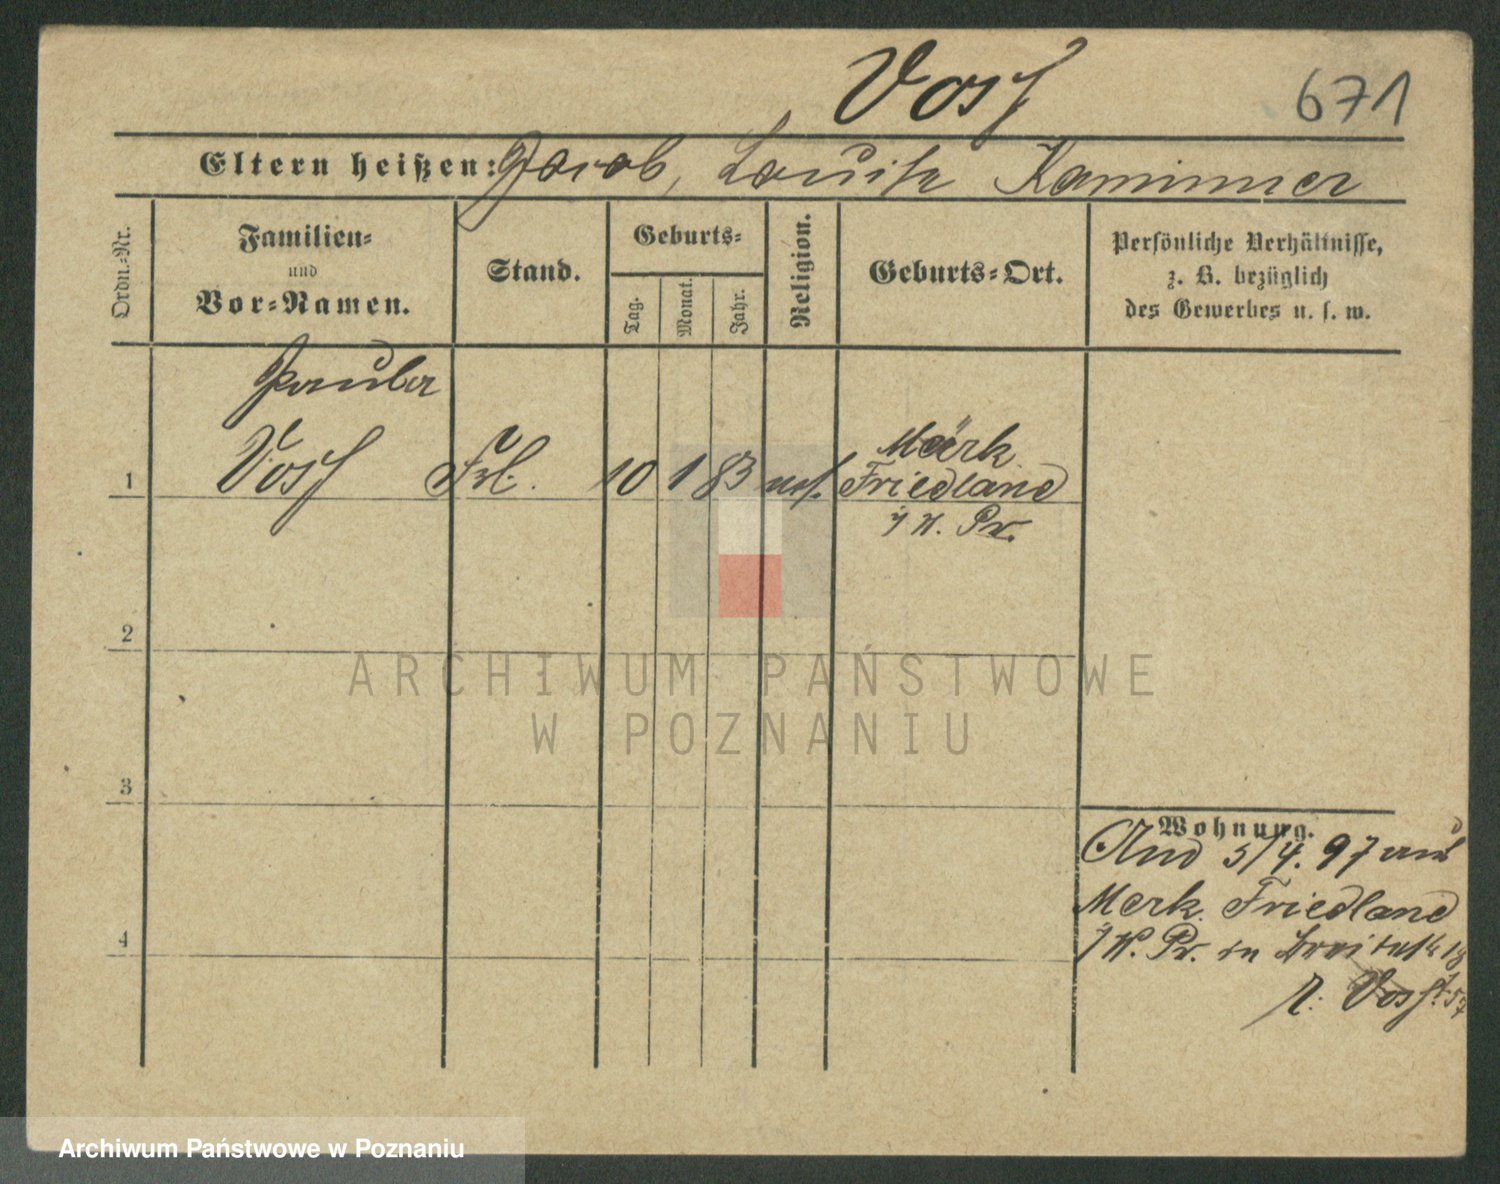 Voss 671
Eltern heißen: Jacob, Louise Kaminner
Ordn.-Nr.
Familien-
und
Vor-Namen.
Stand.
Geburts-
Tag.
Monat.
Jahr.
Religion.
Geburts-Ort.
Persönliche Verhältnisse,
z. B. bezüglich
des Gewerbes u. s. w.
1 Voss Frl. 10 1 83 Märk.
Friedland
W. Pr.
2
3
4
Wohnung.
5/4. 97 aus
Merk. Friedland
W. Pr. in
Voss
ARCHIWUM PAŃSTWOWE
W POZNANIU
Archiwum Państwowe w Poznaniu